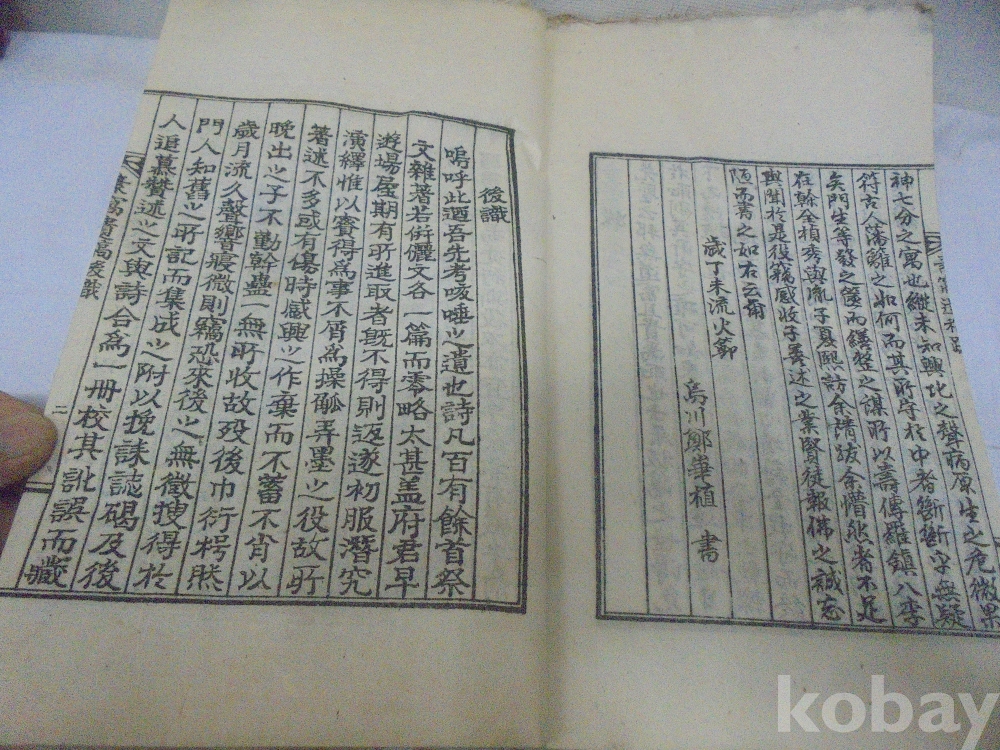 神七分之寓也繼未知興比之聲病原生之危微果
符古人藩離之如何而其所守於中者斷斷乎無疑
矣門生等發之篋而繕整之謀所以壽傳羅鎭八李
在榦金楨秀與流子夏熙訪余潸
與聞於是役竊感收子善述之業賢徒報佛之誠忘
陋而書之如右云爾
歲丁未流火節
烏川鄭華植 書
後識
嗚呼此迺吾先考咳唾之遺也詩凡百有餘首祭
文雜著若倂儷文各一篇而零略太甚盖府君早
遊場屋期有所進取者旣不得則迺遂初服潛究
演繹惟以實得爲事不屑爲操觚弄墨之役故所
著述不多或有傷時感興之作棄而不蓄不肖以
晩出之子不勤幹蠱一無所收故歿後巾衍枵然
歲月流久聲響寢微則竊恐來後之無徵搜得於
門人知舊之所記而集成之附以挽誄誌碣及後
人追慕贊述之文與詩合爲一冊校其訛誤而藏
二
kobay